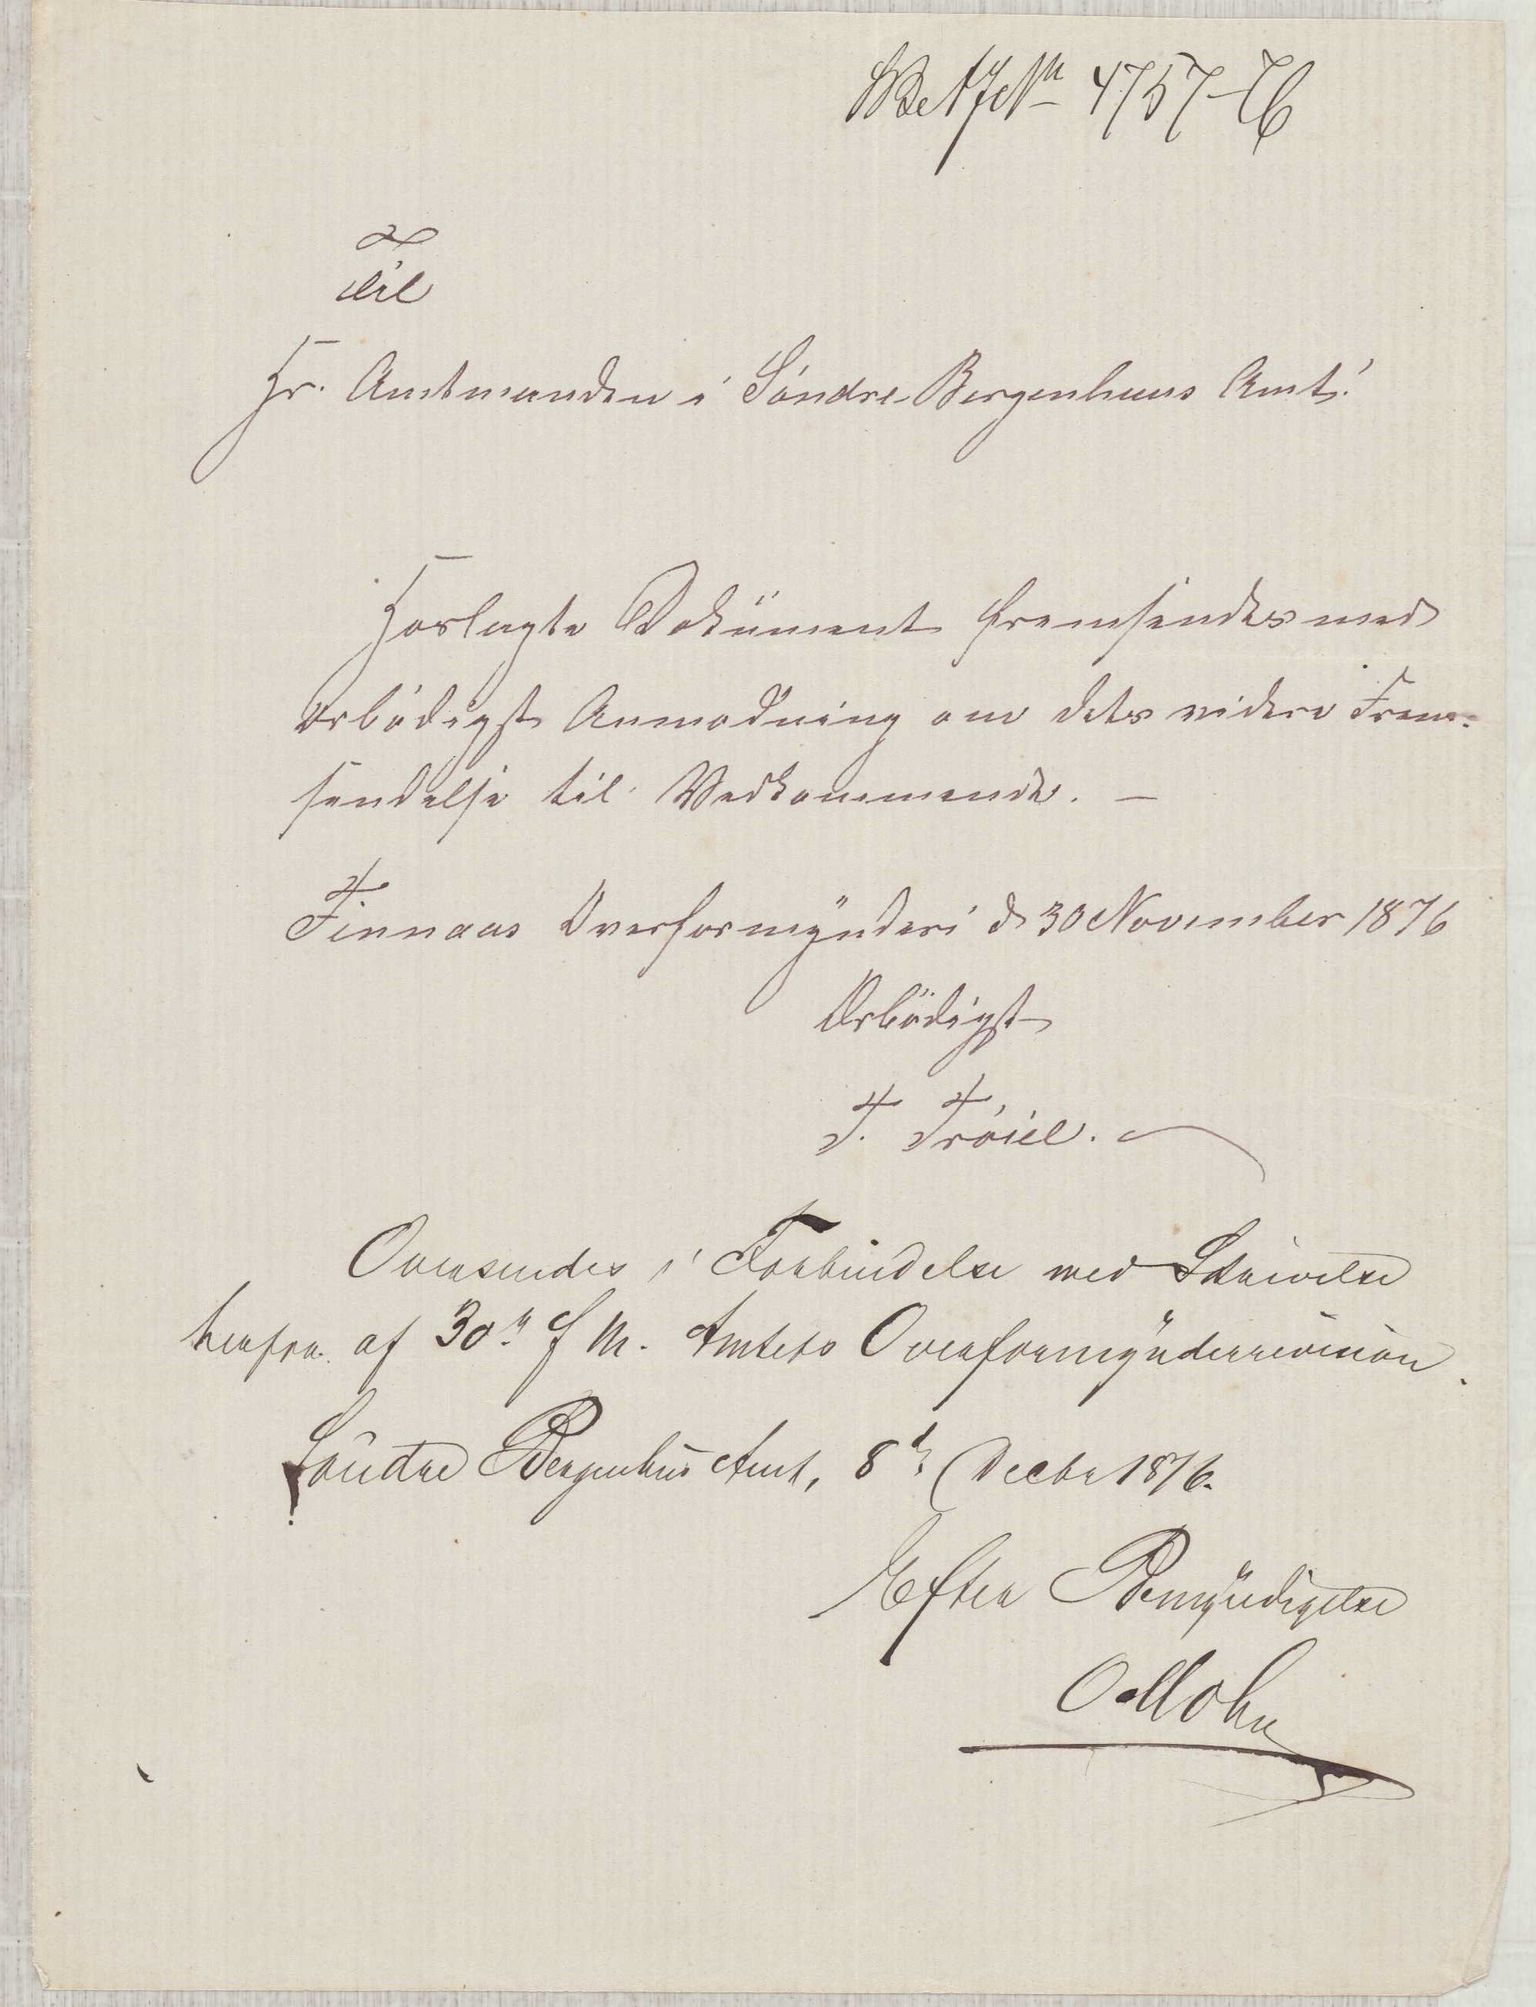 SBeAJeNr 4757-76
Til
Hr. Amtmanden i Söndre Bergenhuus Amt!
Hoslagte Dokument fremsendes med
ærbödigst Anmodning om dets videre Frem-
sendelse til Vedkommende. –
Finnaas Overformynderi d 30 November 1876
Ærbödigst
T. Tröiel.
Oversendes i Forbindelse med Skrivelse
herfra af 30n f M. Amtets Overformynderrevision.
Söndre Bergenhus Amt, 8de Decbr 1876.
Efter Bemyndigelse
O Mohn